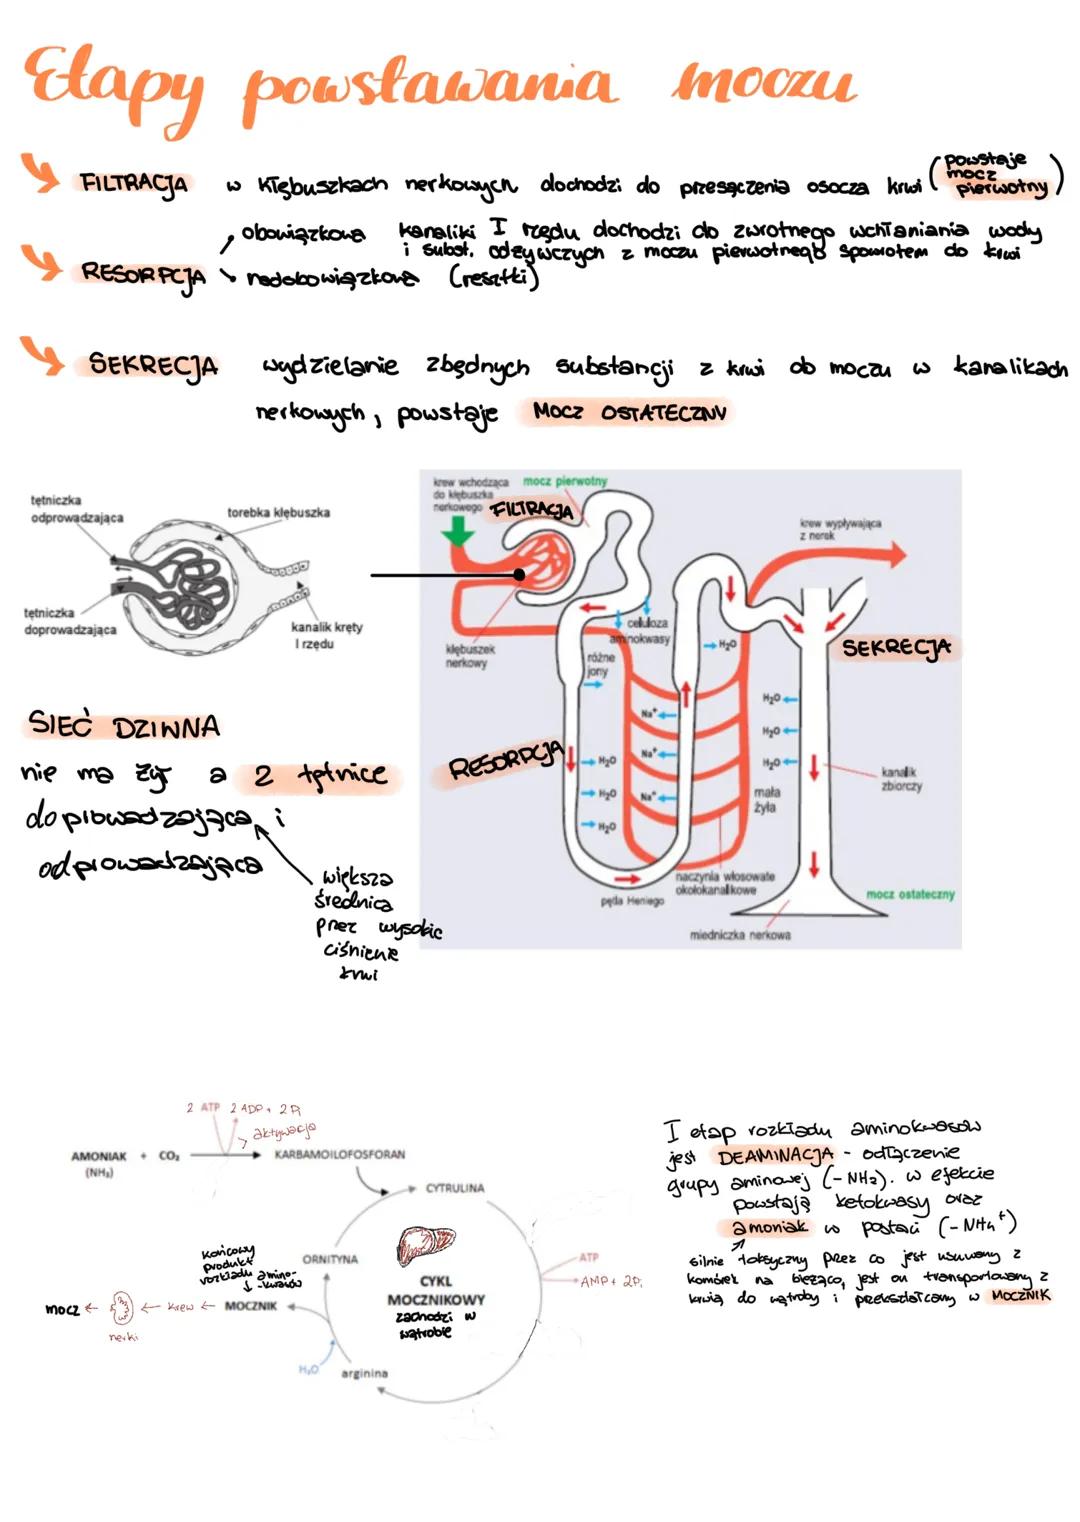 Etapy powstawania moczu
FILTRACJA w kłębuszkach nerkowych dochodzi do przesączenia osocza krwi (powstaje mocz pierwotny)
RESORPCJA
obowiązkowa kanaliki I rzędu dochodzi do zwrotnego wchłaniania wody
i subst. odżywczych z moczu pierwotnego spowrotem do krwi
nadobowiązkowa (resztki)
SEKRECJA wydzielanie zbędnych substancji z krwi do moczu w kanalikach
nerkowych, powstaje MOCZ OSTATECZNY
tętniczka
odprowadzająca
torebka kłębuszka
tętniczka
doprowadzająca
kanalik kręty
I rzędu
krew wchodząca
do kłębuszka
nerkowego
mocz pierwotny
FILTRACJA
krew wypływająca
z nerek
kłębuszek
nerkowy
celuloza
aminokwasy
różne
jony
H₂O
SEKRECJA
Na⁺
Na⁺
Na⁺
RESORPCJA
H₂O
H₂O
H₂O
H₂O
H₂O
H₂O
mała
żyła
kanalik
zbiorczy
naczynia włosowate
okołokanalikowe
pętla Henlego
mocz ostateczny
miedniczka nerkowa
SIEĆ DZIWNA
nie ma żył a 2 tętnice
doprowadzająca i
odprowadzająca
większa
średnica
przez wysokie
ciśnienie
krwi
2 ATP 2 ADP + 2Pi
aktywacja
AMONIAK + CO₂
(NH₃)
KARBAMOILOFOSFORAN
CYTRULINA
ORNITYNA
ATP
AMP + 2Pi
CYKL
MOCZNIKOWY
zachodzi w
wątrobie
końcowy
produkt
rozkładu amino-
-kwasów
mocz ← ← krew ← MOCZNIK
nerki
H₂O
arginina
I etap rozkładu aminokwasów
jest DEAMINACJA - odłączenie
grupy aminowej (-NH₂). w efekcie
powstają ketokwasy oraz
amoniak w postaci (-NH₄⁺)
silnie toksyczny przez co jest usuwany z
komórek na bieżąco, jest on transportowany z
krwią do wątroby i przekształcany w MOCZNIK